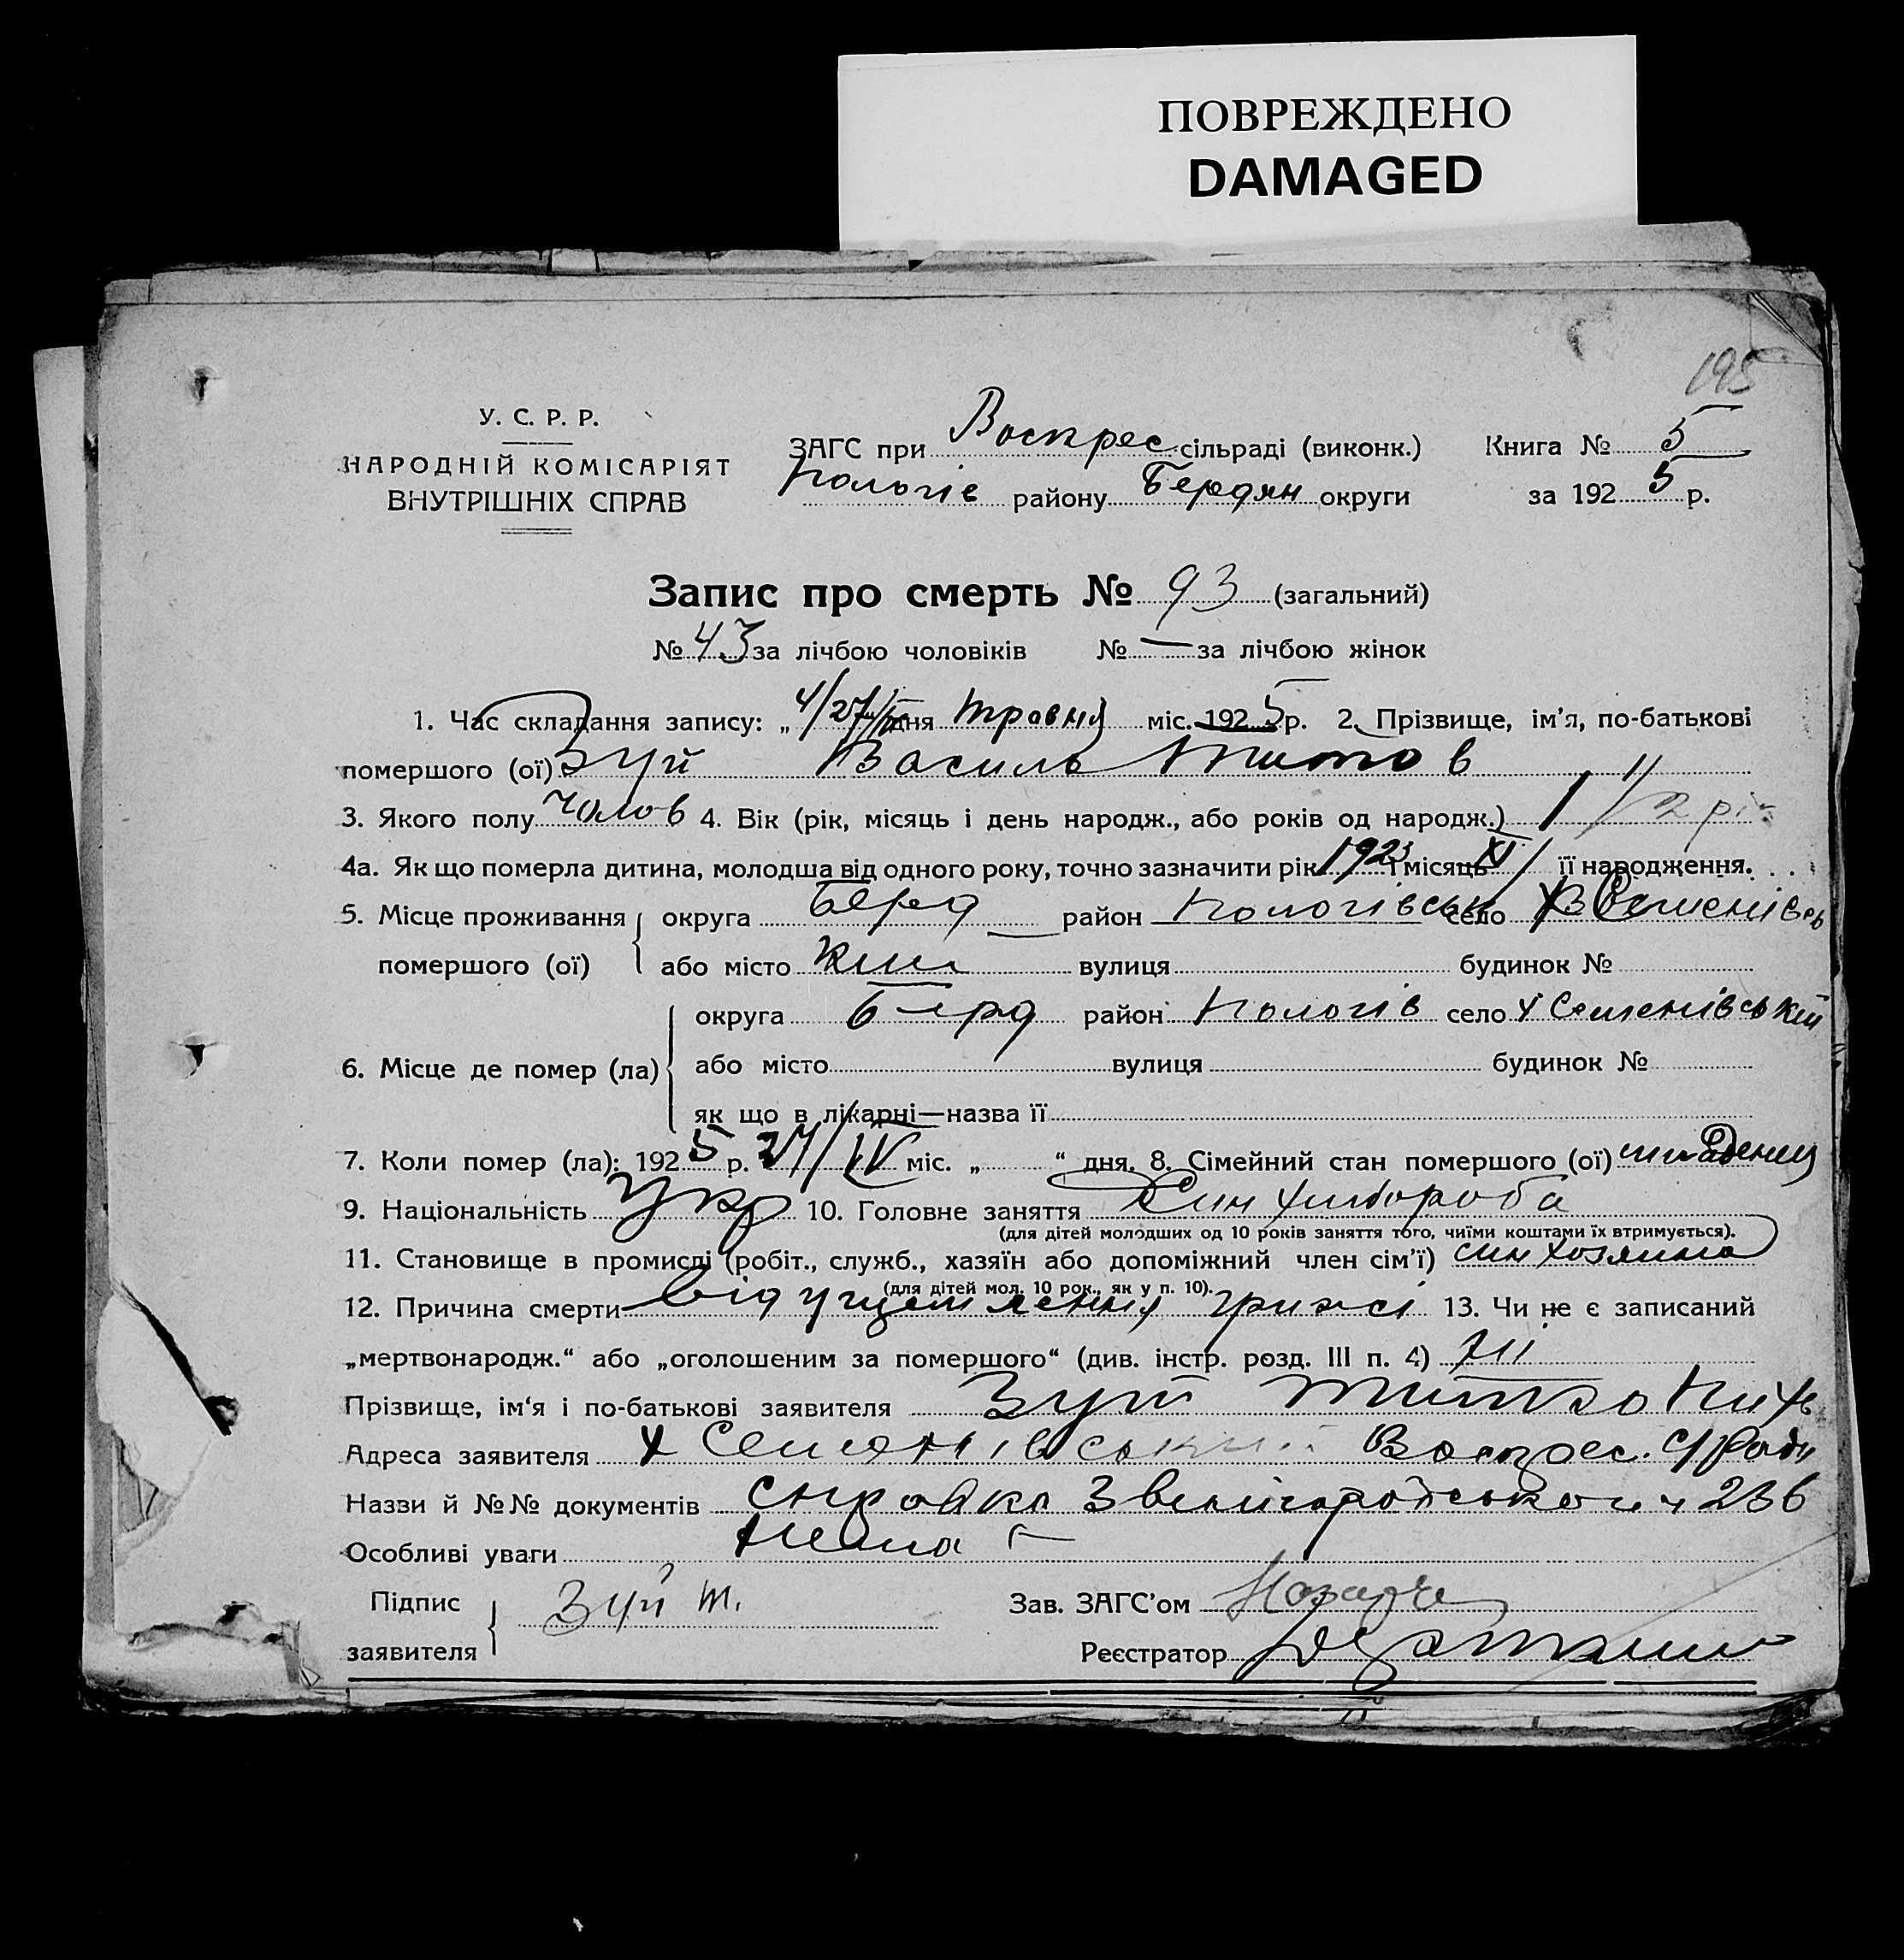 ПОВРЕЖДЕНО
DAMAGED
195
У. С. Р. Р.
НАРОДНІЙ КОМІСАРІЯТ
ВНУТРІШНІХ СПРАВ
ЗАГС при Воскрес сільраді (виконк.) Книга № 5
Пологів району Бердян округи за 192 5 р.
Запис про смерть № 93 (загальний)
№ 43 за лічбою чоловіків № — за лічбою жінок
1. Час складання запису: „ 4/27/ дня травня міс. 192 5 р. 2. Прізвище, ім’я, по-батькові
помершого (ої) Зуй Василь Титов
3. Якого полу чолов 4. Вік (рік, місяць і день народж., або років од народж.) 1 1/2 рік
4а. Як що померла дитина, молодша від одного року, точно зазначити рік 1923 і місяць XI її народження.
5. Місце проживання помершого (ої) округа Берд район Пологівськ село Х Семенівсь
або місто кий вулиця будинок №
6. Місце де помер (ла) округа Берд район Пологів село Х Семенівський
або місто вулиця будинок №
як що в лікарні—назва її
7. Коли помер (ла): 192 5 р. 27/IV міс. „ “ дня. 8. Сімейний стан помершого (ої)
9. Національність Укр 10. Головне заняття Син хлібороба
(для дітей молодших од 10 років заняття того, чиїми коштами їх втримується).
11. Становище в промислі (робіт., служб., хазяїн або допоміжний член сім’ї) син хозяина
(для дітей мол. 10 рок., як у п. 10).
12. Причина смерти від ущемлення грижі 13. Чи не є записаний
„мертвонародж.“ або „оголошеним за помершого“ (див. інстр. розд. III п. 4) ні
Прізвище, ім‘я і по-батькові заявителя Зуй Титко
Адреса заявителя Х Семенівський Воскрес. с/ради
Назви й №№ документів справка Звенигородського 236
Особливі уваги Нема
Підпис заявителя Зуй Т. Зав. ЗАГС’ом
Реєстратор